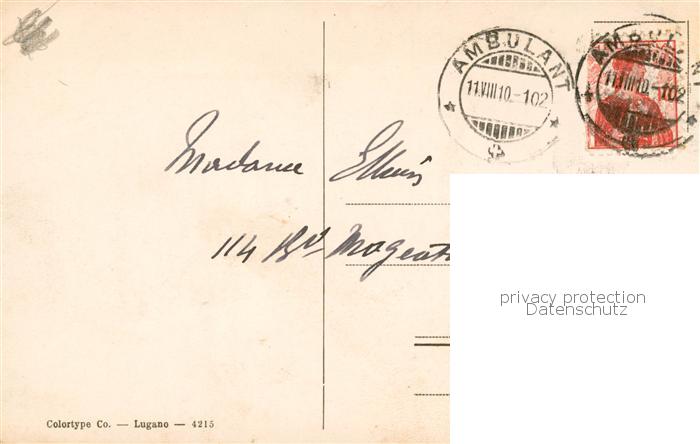 AMBULANT
11.VIII10.-102
AMBULANT
11.VIII10.-102
Madame
114 Bd Magenta
privacy protection
Datenschutz
Colortype Co. — Lugano — 4215